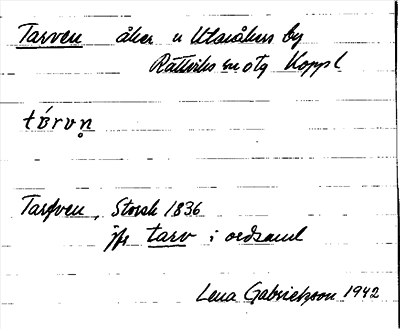 Tarven åker u Utanåkers by
Rättviks sn otg Koppl
tárvn̥
Tarfven, Storsk 1836
jfr tarv i ordsaml
Lena Gabrielsson 1942